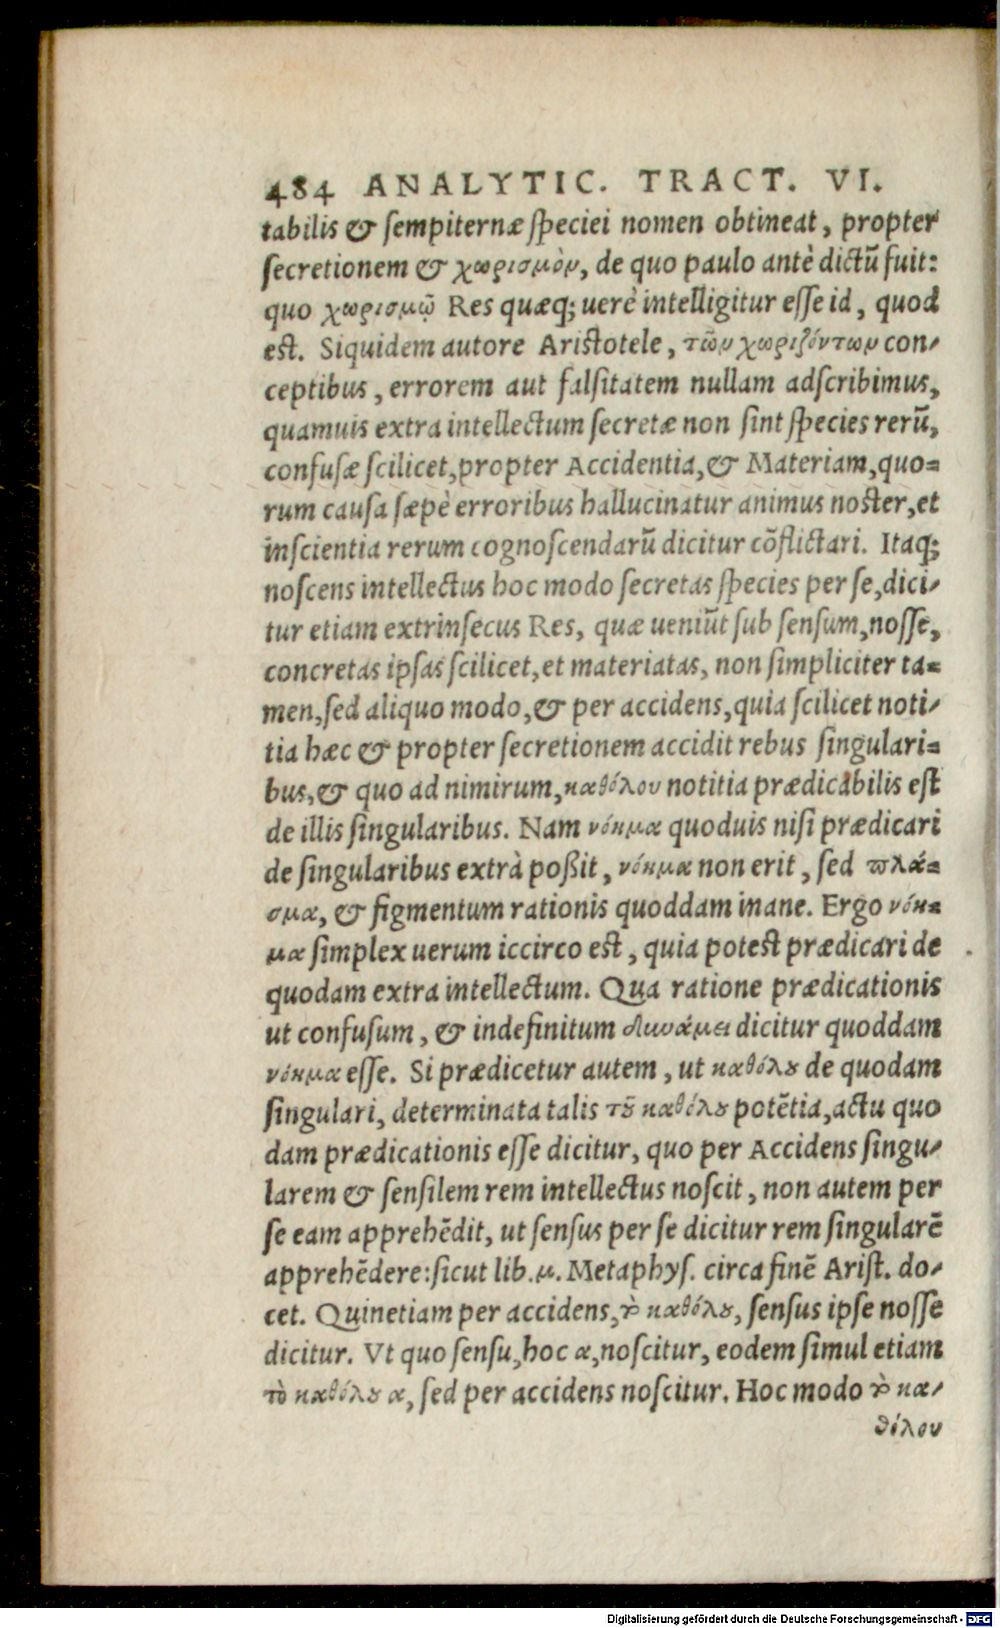 484 ANALYTIC. TRACT. VI.
tabilis & sempiternæ speciei nomen obtineat, propter
secretionem & χωρισμὸν, de quo paulo antè dictũ fuit:
quo χωρισμῷ Res quæq; uerè intelligitur esse id, quod
est. Siquidem autore Aristotele, τῶν χωριζόντων con-
ceptibus, errorem aut falsitatem nullam adscribimus,
quamuis extra intellectum secretæ non sint species rerũ,
confusæ scilicet, propter Accidentia, & Materiam, quo=
rum causa sæpè erroribus hallucinatur animus noster, et
inscientia rerum cognoscendarũ dicitur cõflictari. Itaq;
noscens intellectus hoc modo secretas species per se, dici-
tur etiam extrinsecus Res, quæ ueniũt sub sensum, nosse,
concretas ipsas scilicet, et materiatas, non simpliciter ta=
men, sed aliquo modo, & per accidens, quia scilicet noti-
tia hæc & propter secretionem accidit rebus singulari=
bus, & quo ad nimirum, καθόλου notitia prædicabilis est
de illis singularibus. Nam νόημα quoduis nisi prædicari
de singularibus extrà poßit, νόημα non erit, sed πλά=
σμα, & figmentum rationis quoddam inane. Ergo νόη=
μα simplex uerum iccirco est, quia potest prædicari de
quodam extra intellectum. Qua ratione prædicationis
ut confusum, & indefinitum δυνάμει dicitur quoddam
νόημα esse. Si prædicetur autem, ut καθόλȣ de quodam
singulari, determinata talis τȣ͂ καθόλȣ potẽtia, actu quo
dam prædicationis esse dicitur, quo per Accidens singu-
larem & sensilem rem intellectus noscit, non autem per
se eam apprehẽdit, ut sensus per se dicitur rem singularẽ
apprehẽdere: sicut lib. μ. Metaphys. circa finẽ Arist. do-
cet. Quinetiam per accidens, τὸ καθόλȣ, sensus ipse nosse
dicitur. Vt quo sensu, hoc α, noscitur, eodem simul etiam
τὸ καθόλȣ α, sed per accidens noscitur. Hoc modo τὸ κα-
θόλου
Digitalisierung gefördert durch die Deutsche Forschungsgemeinschaft - DFG